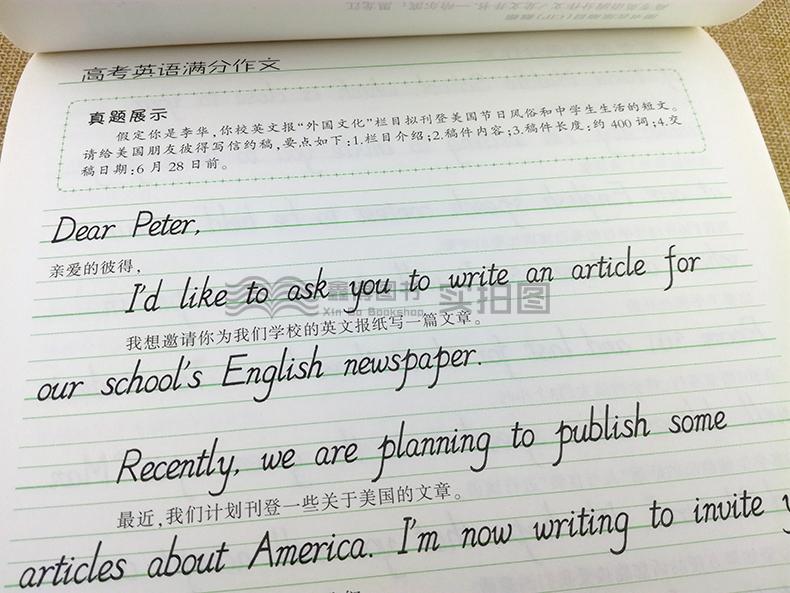 高考英语满分作文
真题展示
假定你是李华,你校英文报“外国文化”栏目拟刊登美国节日风俗和中学生生活的短文。
请给美国朋友彼得写信约稿,要点如下:1.栏目介绍;2.稿件内容;3.稿件长度:约400词;4.交
稿日期:6月28日前。
Dear Peter,
亲爱的彼得,
I'd like to ask you to write an article for
Bookshop 实拍图
我想邀请你为我们学校的英文报纸写一篇文章。
our school's English newspaper.
Recently, we are planning to publish some
最近,我们计划刊登一些关于美国的文章。
articles about America. I'm now writing to invite